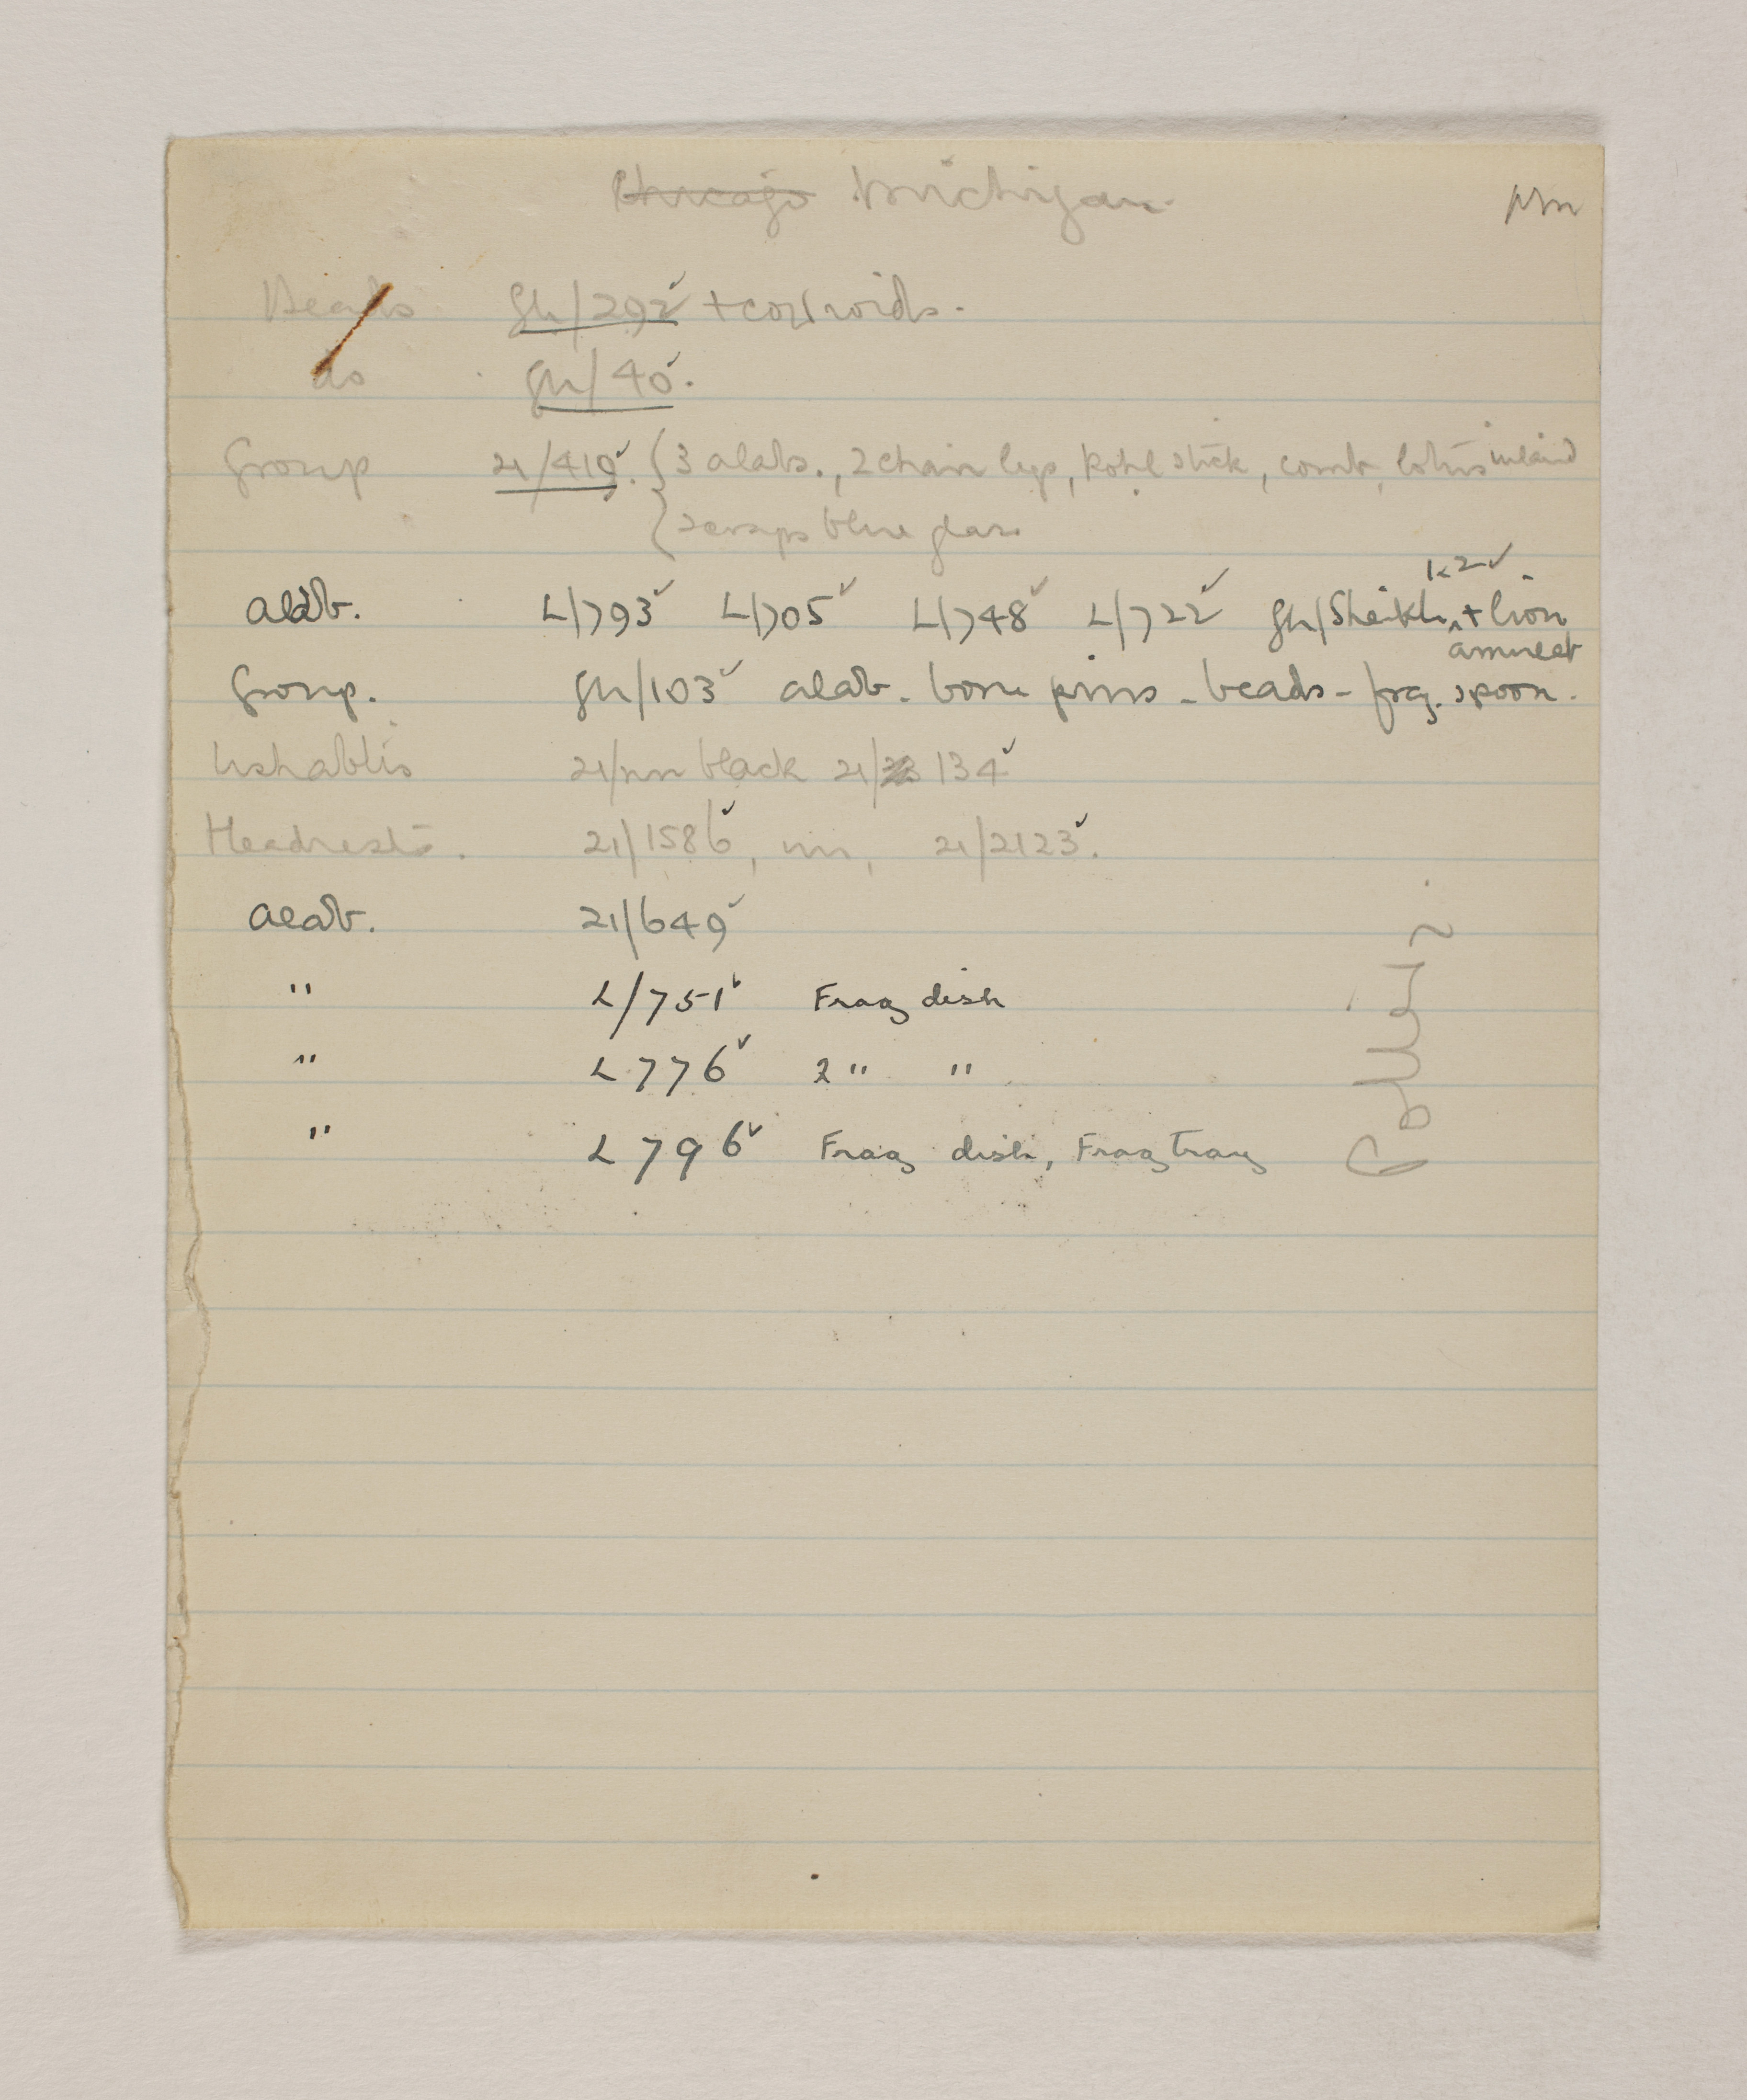 Chicago Michigan
Beads Gh/292 ✓ + cowroids.
do Gh/40 ✓.
Group 21/419 ✓. { 3 alabs., 2 chair legs, Kohl stick, comb, lotus inlaid
{ scraps blue glass
k2 ✓
alab. L/793 ✓ L/705 ✓ L/748 ✓ L/722 ✓ Gh/Sheikh + lion
amulet
Group. Gh/103 ✓ alab. bone pins - beads - frag. spoon.
Ushabtis 21/nn black 21/ 134 ✓
Headrests. 21/1586 ✓, nn, 21/2123 ✓.
alab. 21/649 ✓
" L/751 ✓ Frag dish
" L 776 ✓ 2 " "
" L 796 ✓ Frag dish, Frag Tray